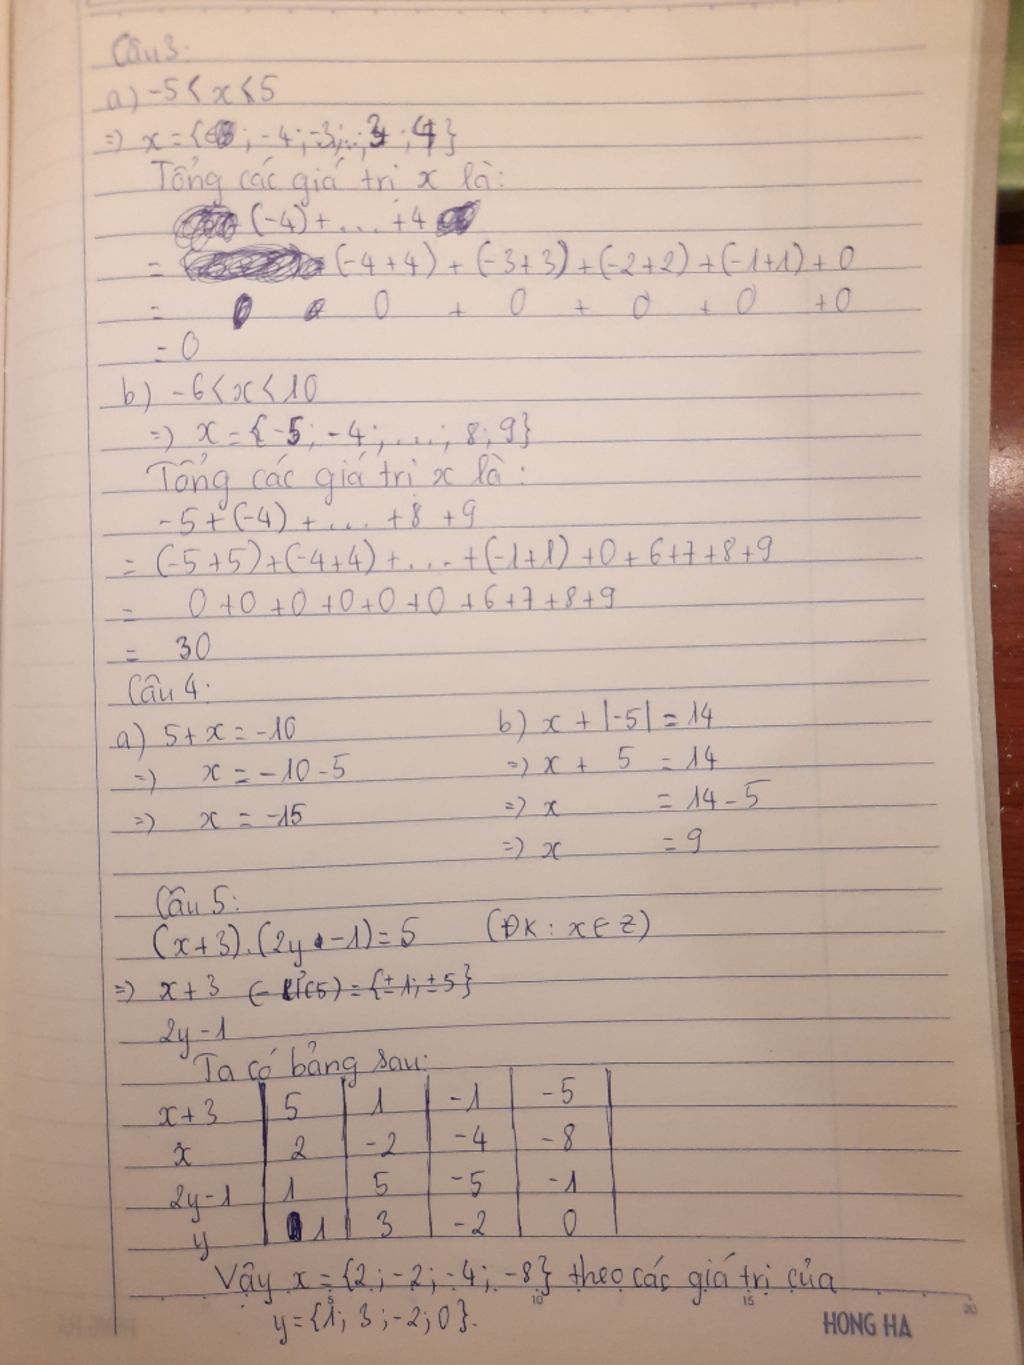 Câu 3:
a) -5 < x < 5
=> x = { ; -4 ; -3 ; .. ; 3 ; 4 }
Tổng các giá trị x là:
(-4) + ... + 4
= (-4+4) + (-3+3) + (-2+2) + (-1+1) + 0
= 0 + 0 + 0 + 0 + 0
= 0
b) -6 < x < 10
=> x = {-5; -4; ...; 8; 9}
Tổng các giá trị x là:
-5 + (-4) + ... + 8 + 9
= (-5+5) + (-4+4) + ... + (-1+1) + 0 + 6 + 7 + 8 + 9
= 0 + 0 + 0 + 0 + 0 + 0 + 6 + 7 + 8 + 9
= 30
Câu 4:
a) 5 + x = -10
=> x = -10 - 5
=> x = -15
b) x + |-5| = 14
=> x + 5 = 14
=> x = 14 - 5
=> x = 9
Câu 5:
(x+3).(2y-1) = 5 (ĐK: x ∈ Z)
=> x+3
2y-1
Ta có bảng sau:
x+3 5 1 -1 -5
x 2 -2 -4 -8
2y-1 1 5 -5 -1
y 1 3 -2 0
Vậy x = {2; -2; -4; -8} theo các giá trị của
y = {1; 3; -2; 0}.
5 10 15 20
HONG HA